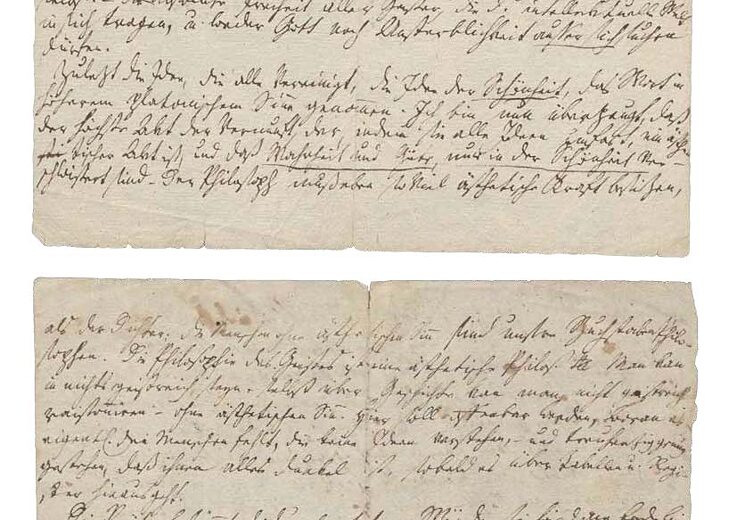 Freiheit aller Geister, die d. intellektuelle Welt
in sich tragen, u. weder Gott noch Unsterblichkeit ausser sich suchen
dürfen.
Zulezt die Idee, die alle vereinigt, die Idee der Schönheit, das Wort in
höherem platonischem Sinne genommen. Ich bin nun überzeugt, daß
der höchste Akt der Vernunft, der, indem sie alle Ideen umfast, ein ästhe-
tischer Akt ist, und daß Wahrheit und Güte, nur in der Schönheit ver-
schwistert sind – Der Philosoph muß eben so viel ästhetische Kraft besitzen,
als der Dichter. die Menschen ohne ästhetischen Sinn sind unsre BuchstabenPhilo-
sophen. Die Philosophie des Geistes ist eine ästhetische Philos. Man kan
in nichts geistreich seyn, selbst über Geschichte kan man nicht geistreich
raisonniren – ohne ästhetischen Sinn. Hier soll offenbar werden, woran es
eigentl. den Menschen fehlt, die keine Ideen verstehen, – und treuherzig genug
gestehen, daß ihnen alles dunkel ist, sobald es über Tabellen u. Regi-
ster hinausgeht.